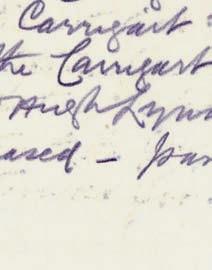 Carrigart
the Carrigart
Hugh
ased –